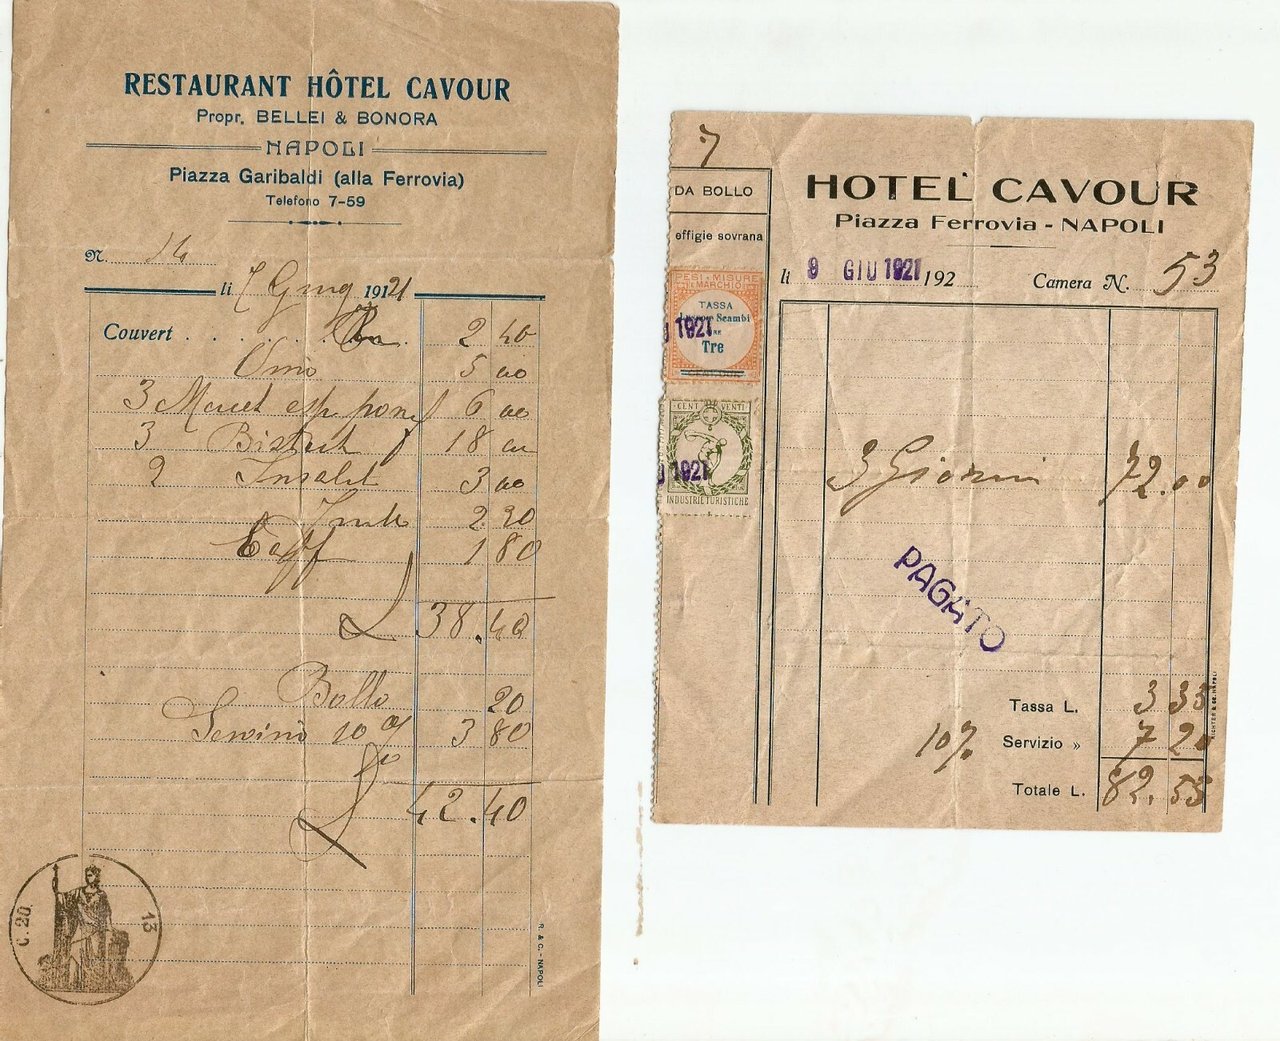 RESTAURANT HÔTEL CAVOUR
Propr. BELLEI & BONORA
NAPOLI
Piazza Garibaldi (alla Ferrovia)
Telefono 7-59
N.
li 7 Giug 1921
Couvert 2 40
Vino 5 00
3 6 00
3 Bistech 18 00
2 Insalet 3 00
Frutta 2.20
Caff 1 80
38.40
Bollo 20
Servizio 10 % 3 80
42.40
C. 20. 13
R. & C. - NAPOLI
7
DA BOLLO
effigie sovrana
PESI E MISURE
E MARCHIO
TASSA
Lusso e Scambi
LIRE
Tre
1921
CENT VENTI
1921
INDUSTRIE TURISTICHE
HOTEL CAVOUR
Piazza Ferrovia - NAPOLI
li 9 GIU 1921 192 Camera N. 53
3 Giorni 72.00
PAGATO
Tassa L. 3 35
10% Servizio » 7 20
Totale L. 82.55
RICHTER & CO. NAPOLI